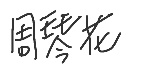 周琴花